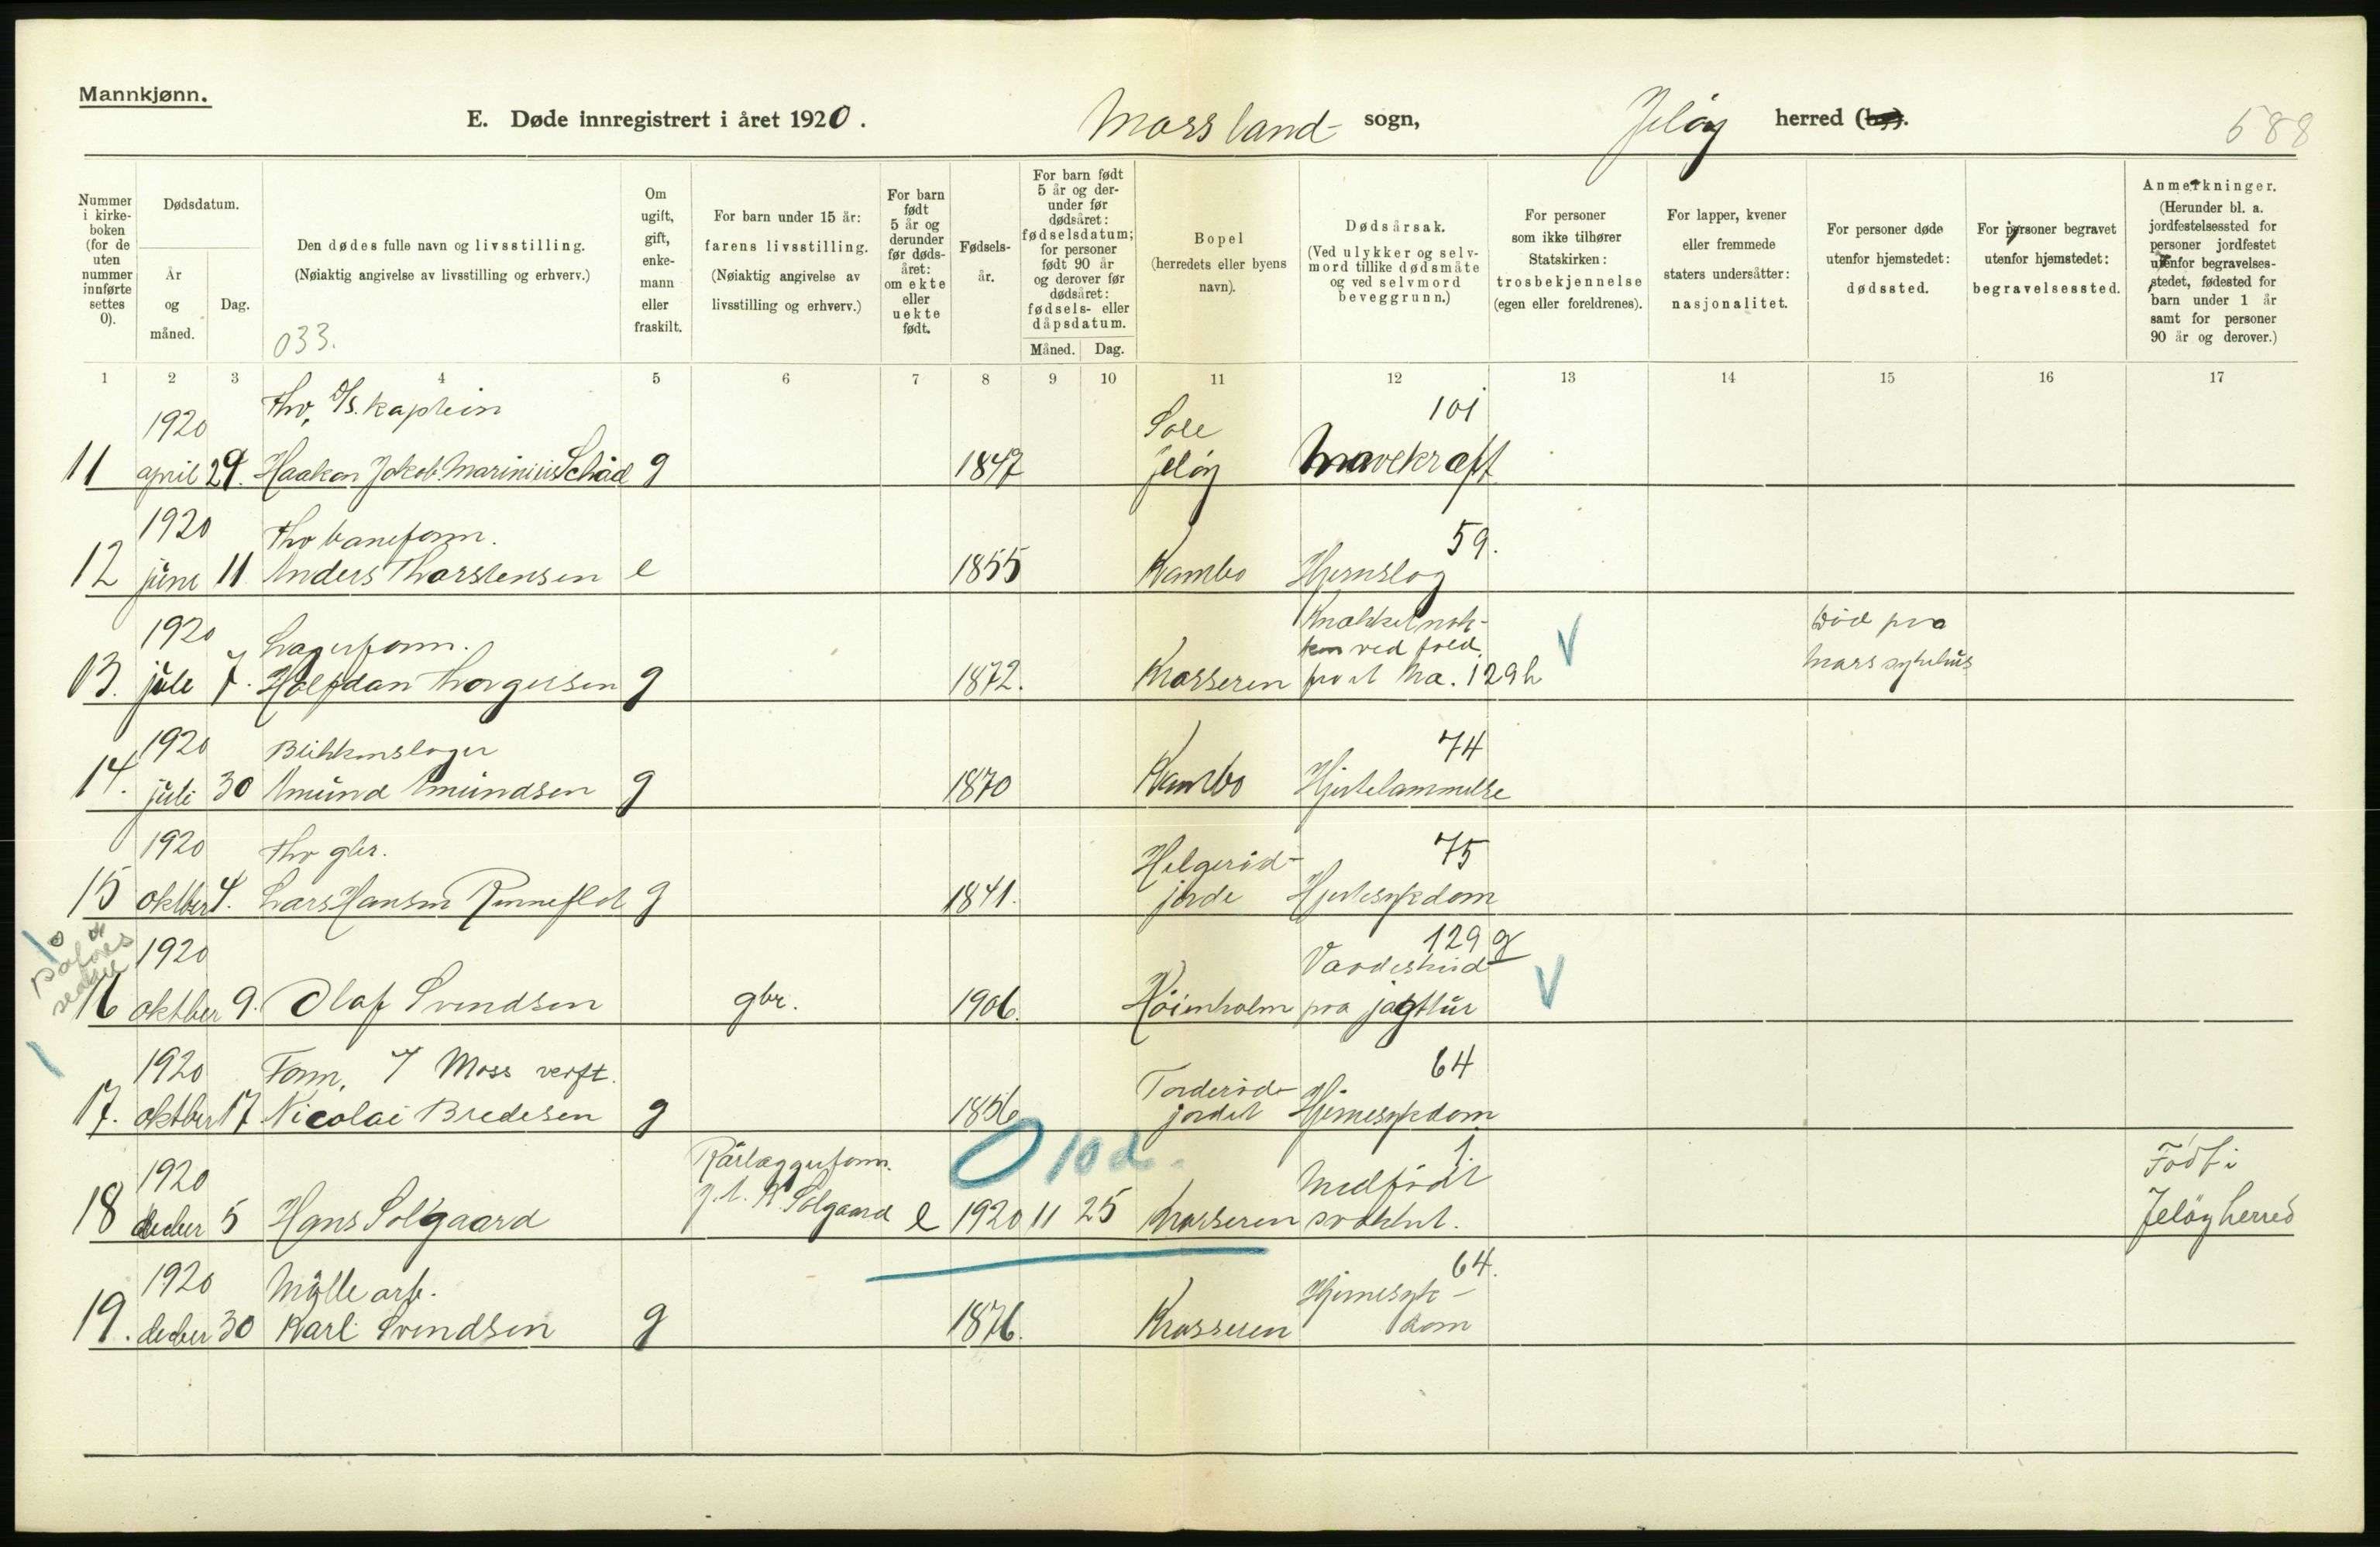 Mannkjønn.
E. Døde innregistrert i året 1920. Moss land- sogn, Jeløy herred (by).
588
Nummer i kirkeboken (for de uten nummer innførte settes 0).
Dødsdatum.
År og måned.
Dag.
Den dødes fulle navn og livsstilling.
(Nøiaktig angivelse av livsstilling og erhverv.)
033.
Om ugift, gift, enkemann eller fraskilt.
For barn under 15 år: farens livsstilling.
(Nøiaktig angivelse av livsstilling og erhverv.)
For barn født 5 år og derunder før dødsåret: om ekte eller uekte født.
Fødselsår.
For barn født 5 år og derunder før dødsåret: fødselsdatum; for personer født 90 år og derover før dødsåret: fødsels- eller dåpsdatum.
Måned. Dag.
Bopel
(herredets eller byens navn).
Dødsårsak.
(Ved ulykker og selvmord tillike dødsmåte og ved selvmord beveggrunn.)
For personer som ikke tilhører Statskirken: trosbekjennelse (egen eller foreldrenes).
For lapper, kvener eller fremmede staters undersåtter: nasjonalitet.
For personer døde utenfor hjemstedet: dødssted.
For personer begravet utenfor hjemstedet: begravelsessted.
Anmerkninger.
(Herunder bl. a. jordfestelsessted for personer jordfestet utenfor begravelsesstedet, fødested for barn under 1 år samt for personer 90 år og derover.)
1 2 3 4 5 6 7 8 9 10 11 12 13 14 15 16 17
1920 fhv. D/S. kaptein Sole 101
11 april 29. Haakon Jakob Marinius Schad g 1847 Jeløy Mavekræft
1920 fhv baneform. 59.
12 juni 11 Anders Thorstensen e 1855 Kambo Hjernslag
1920 Lagerform. Knækket nak- Død paa
ken ved fald V Moss sykehus
13. juli 7. Halfdan Thorgersen g 1872. Krosseren 129h
1920 Blikkenslager 74
14. juli 30 Amund Amundsen g 1870 Kambo Hjertelammelse
1920 fhv gbr. Helgerød- 75
15 oktber 4. Lars Hansen Rinneflot g 1841. jorde Hjertesykdom
1920 129 g
Vaadeskud
16 oktber 9. Olaf Svendsen gbr. 1906. Høienholm paa jagttur V
1920 Form. v/ Moss verft. Torderød- 64
17. oktber 17. Nicolai Bredesen g 1856 jordet Hjernesykdom
0 10 d.
1920 Rørlæggerform. 1. Medfødt Født i
18 decber 5 Hans Solgaard Solgaard e 1920 11 25 Krosseren svakhet. Jeløy herred
1920 Mølle arb. Hjernesyk- 64.
19. decber 30 Karl Svendsen g 1876. Krosseren dom